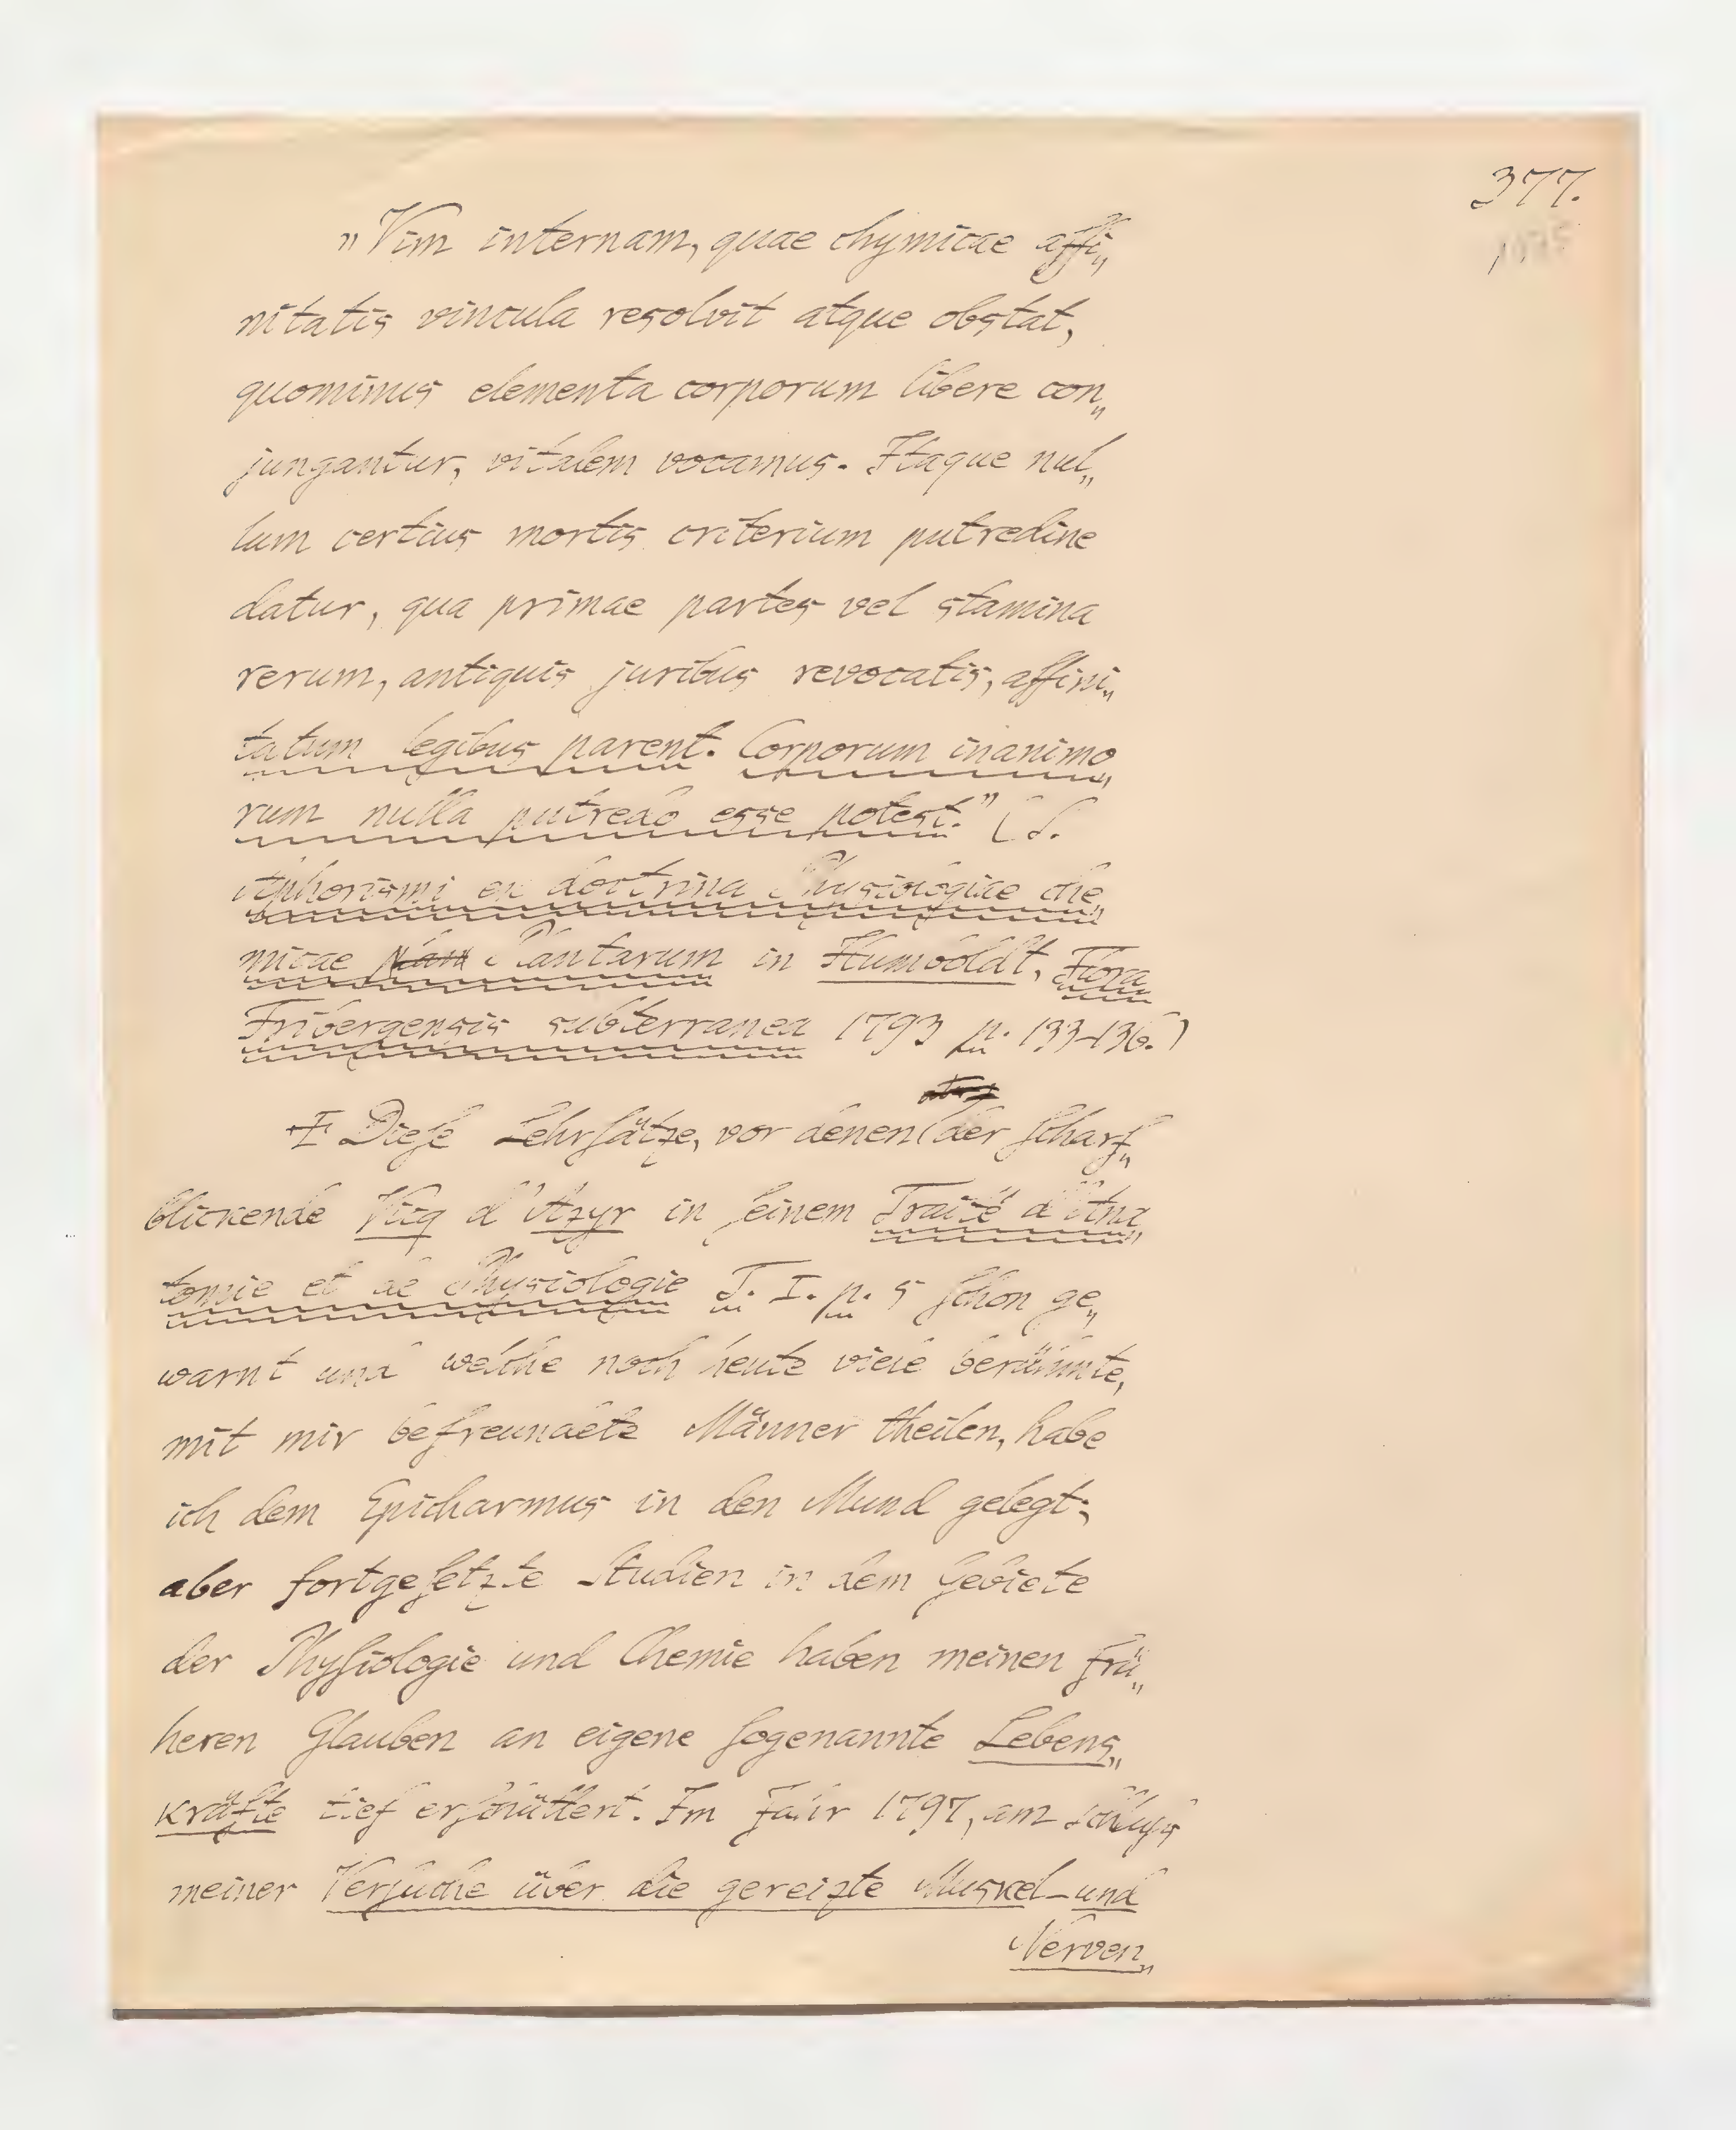 377.
„Vim internam, quae chymicae affi„
nitatis vincula resolvit atque obstat,
quominus elementa corporum libere con„
jungantur, vitalem vocamus. Itaque nul„
lum certius mortis criterium putredine
datur, qua primae partes vel stamina
rerum, antiquis juribus revocatis, affini„
tatum legibus parent. Corporum inanimo„
rum nulla putredo esse potest.” (S.
Aphorismi ex doctrina Physiologiae che„
micae Plantarum in Humboldt, Flora
Fribergensis subterranea 1793 p. 133–136.)
Dieſe Lehrſätze, vor denen der ſcharf„
blickende Vicq d'Azyr in ſeinem Traité d'Ana„
tomie et de Physiologie T. I. p. 5 ſchon ge„
warnt und welche noch heute viele berühmte,
mit mir befreundete Männer theilen, habe
ich dem Epicharmus in den Mund gelegt;
aber fortgeſetzte Studien in dem Gebiete
der Phyſiologie und Chemie haben meinen frü„
heren Glauben an eigene ſogenannte Lebens„
kräfte tief erſchüttert. Im Jahr 1797, am Schluſs
meiner Verſuche über die gereizte Muskel- und
Nerven„